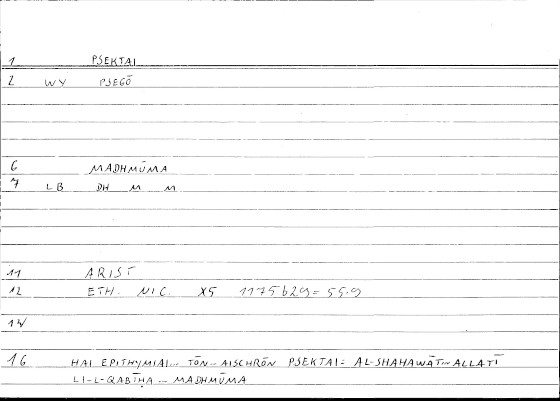 1 PSEKTAI
2 WY PSEGŌ
6 MADHMŪMA
7 LB DH M M
11 ARIST
12 ETH. NIC. X5 1175b29 = 55.9
14
16 HAI EPITHYMIAI... TŌN - AISCHRŌN PSEKTAI = AL-SHAHAWĀT... ALLATĪ
LI-L-QABĪḤA - MADHMŪMA